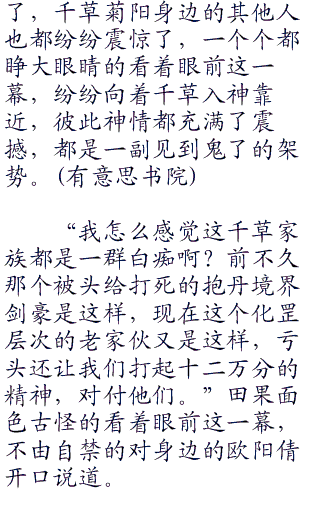 了，千草菊阳身边的其他人
也都纷纷震惊了，一个个都
睁大眼睛的看着眼前这一
幕，纷纷向着千草入神靠
近，彼此神情都充满了震
撼，都是一副见到鬼了的架
势。(有意思书院)
“我怎么感觉这千草家
族都是一群白痴啊？前不久
那个被头给打死的抱丹境界
剑豪是这样，现在这个化罡
层次的老家伙又是这样，亏
头还让我们打起十二万分的
精神，对付他们。”田果面
色古怪的看着眼前这一幕，
不由自禁的对身边的欧阳倩
开口说道。